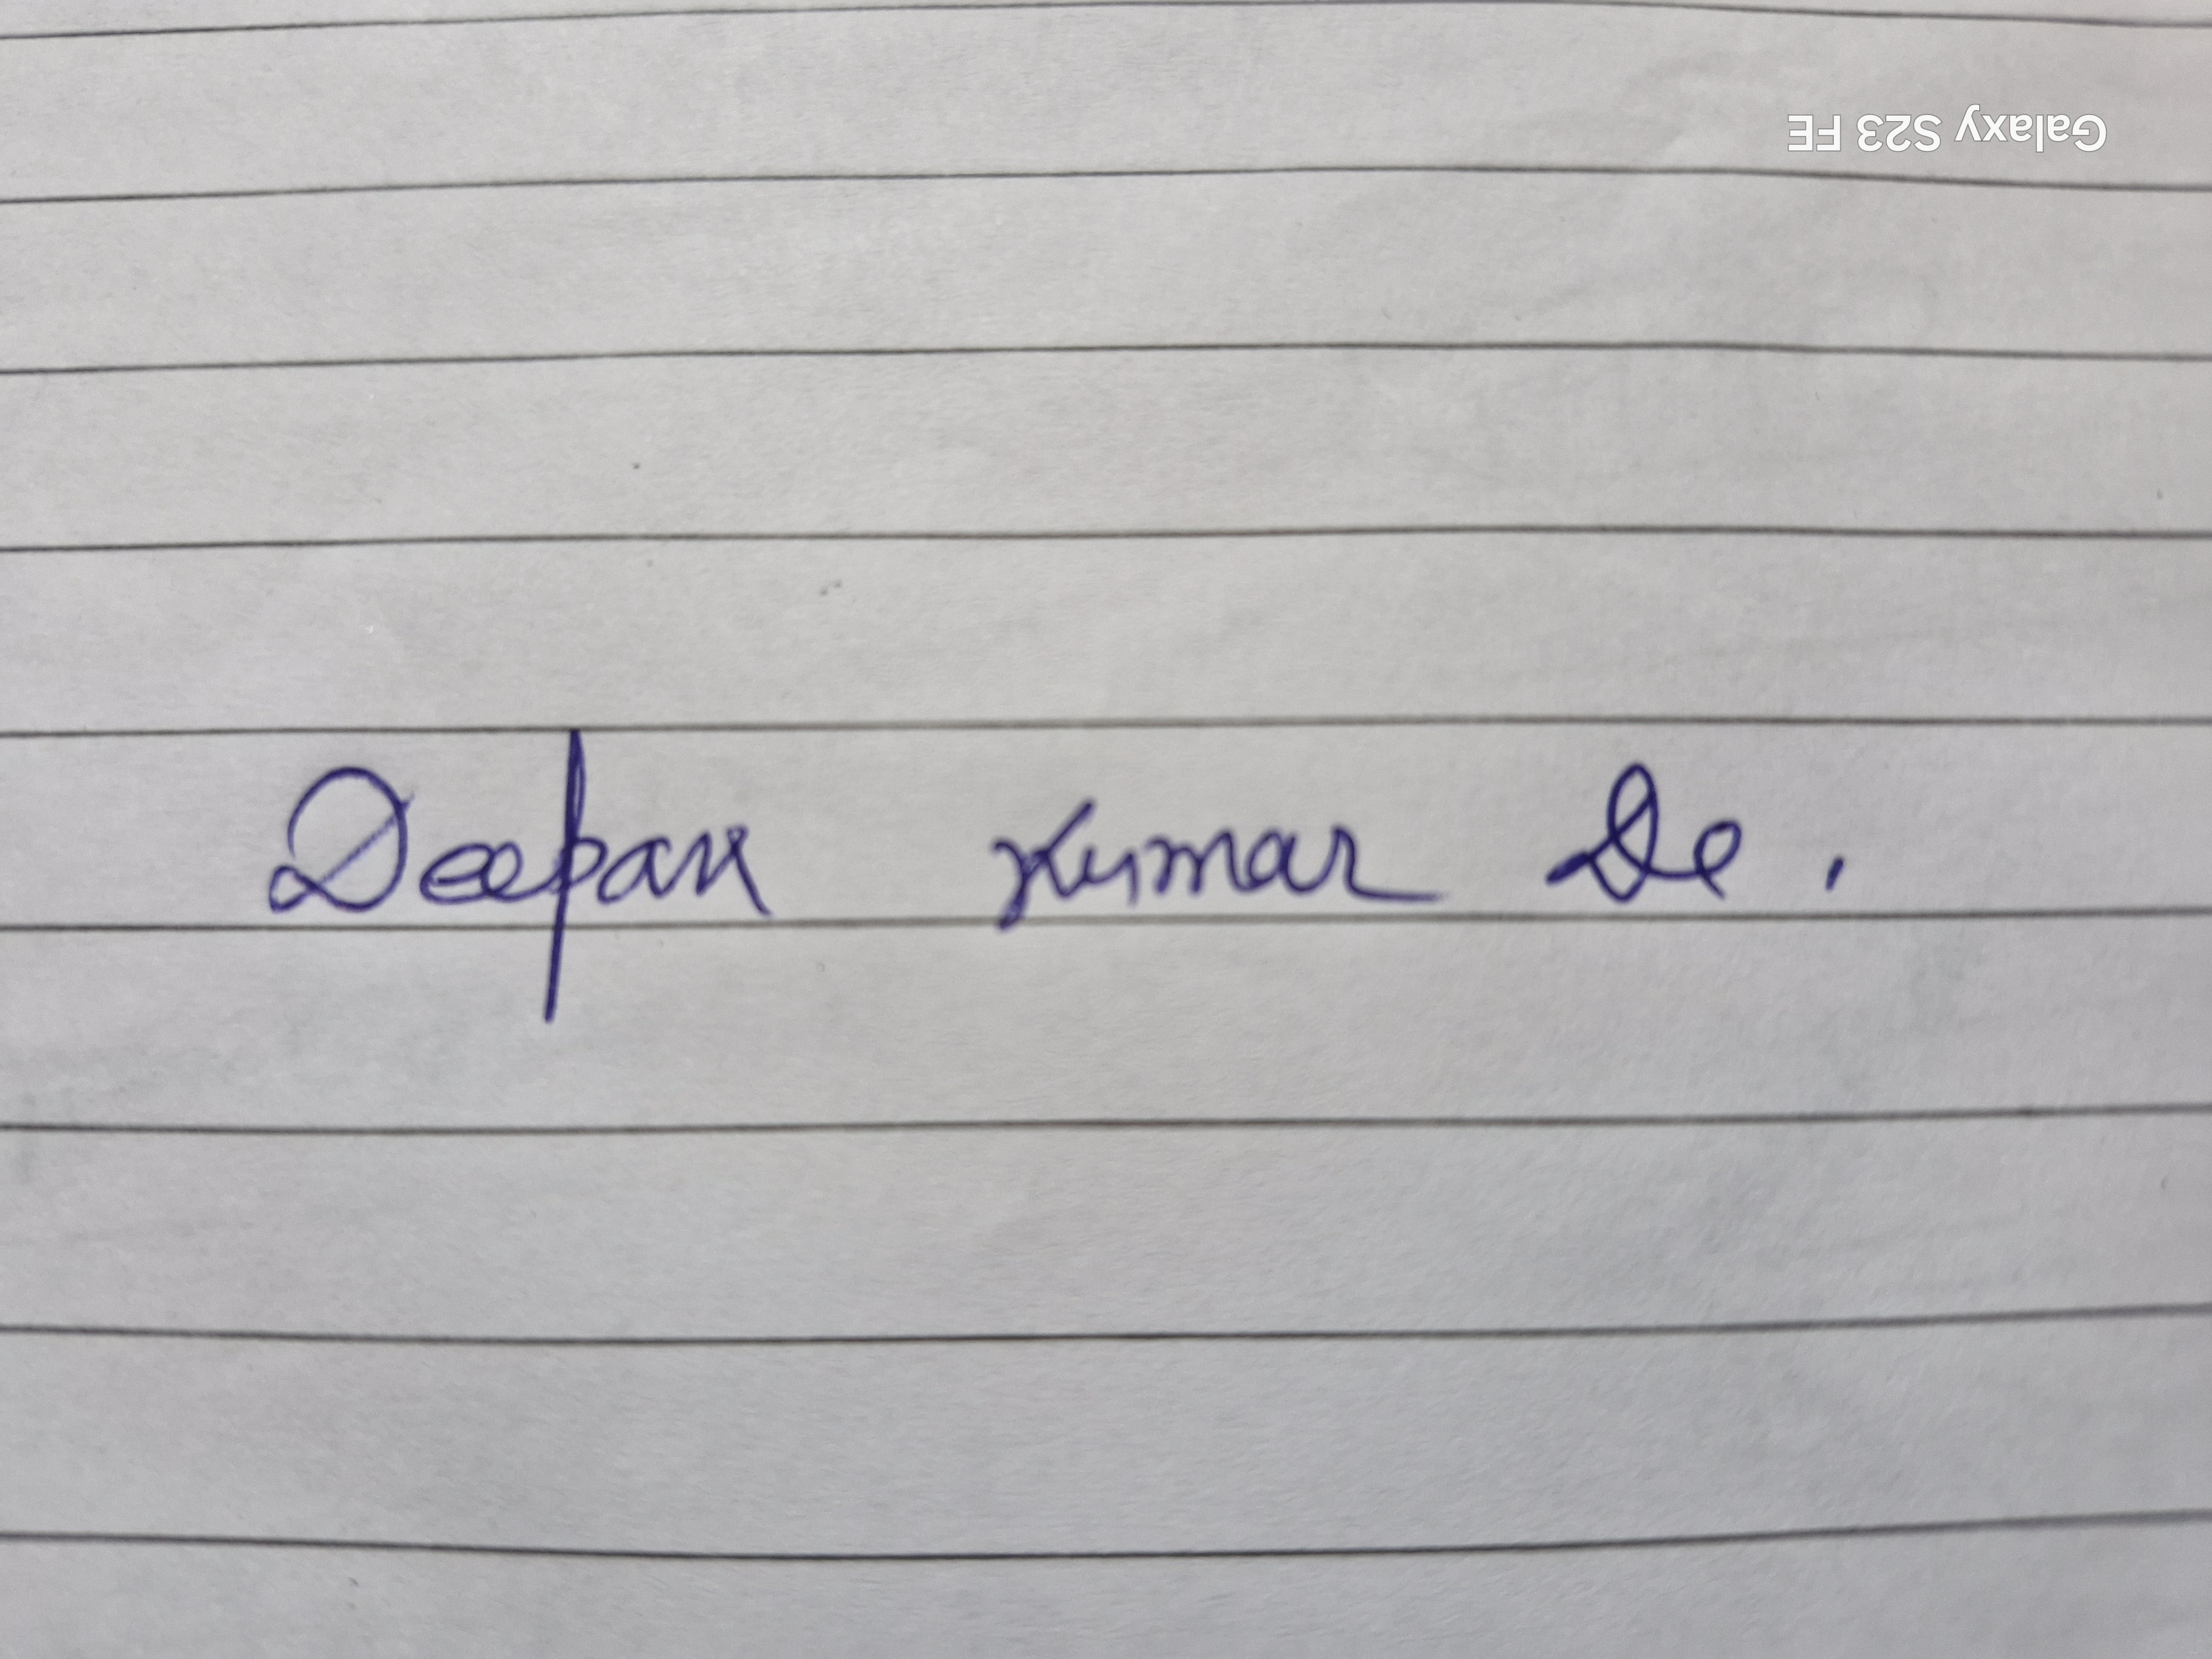 Galaxy S23 FE
Deepak Kumar De.